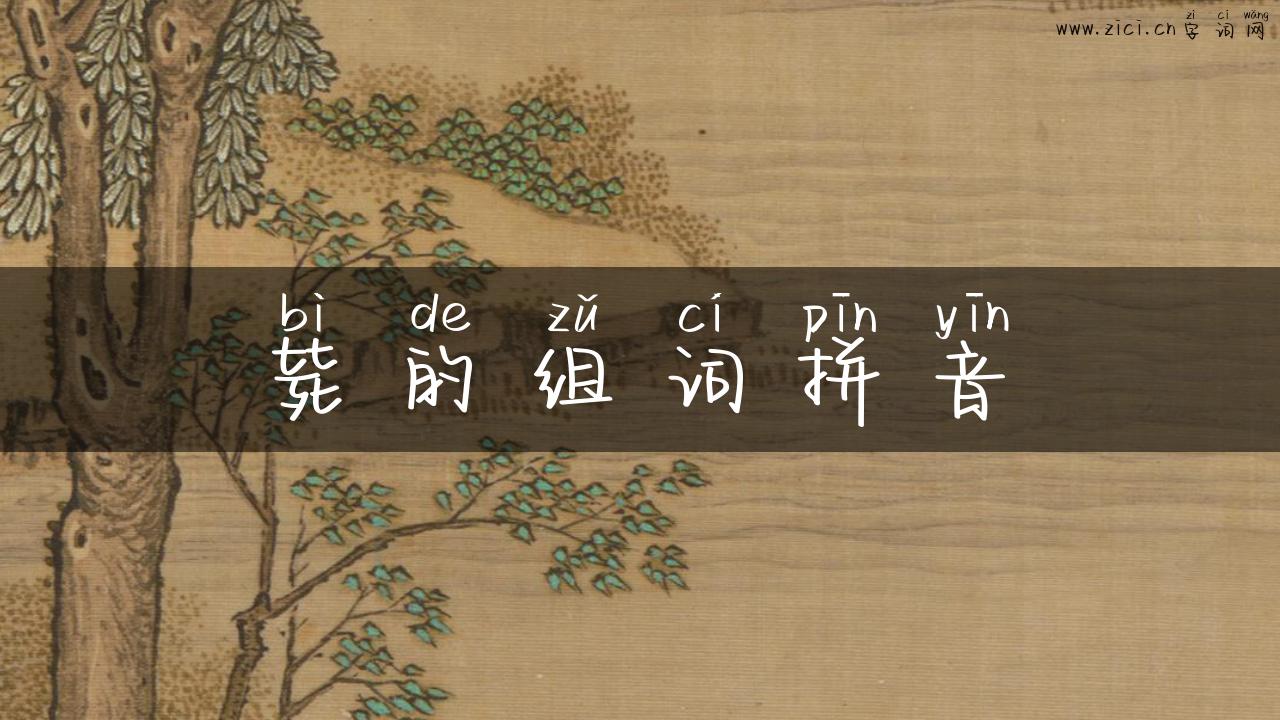 zì cí wǎng
www.zici.cn字词网
bì de zǔ cí pīn yīn
毙的组词拼音